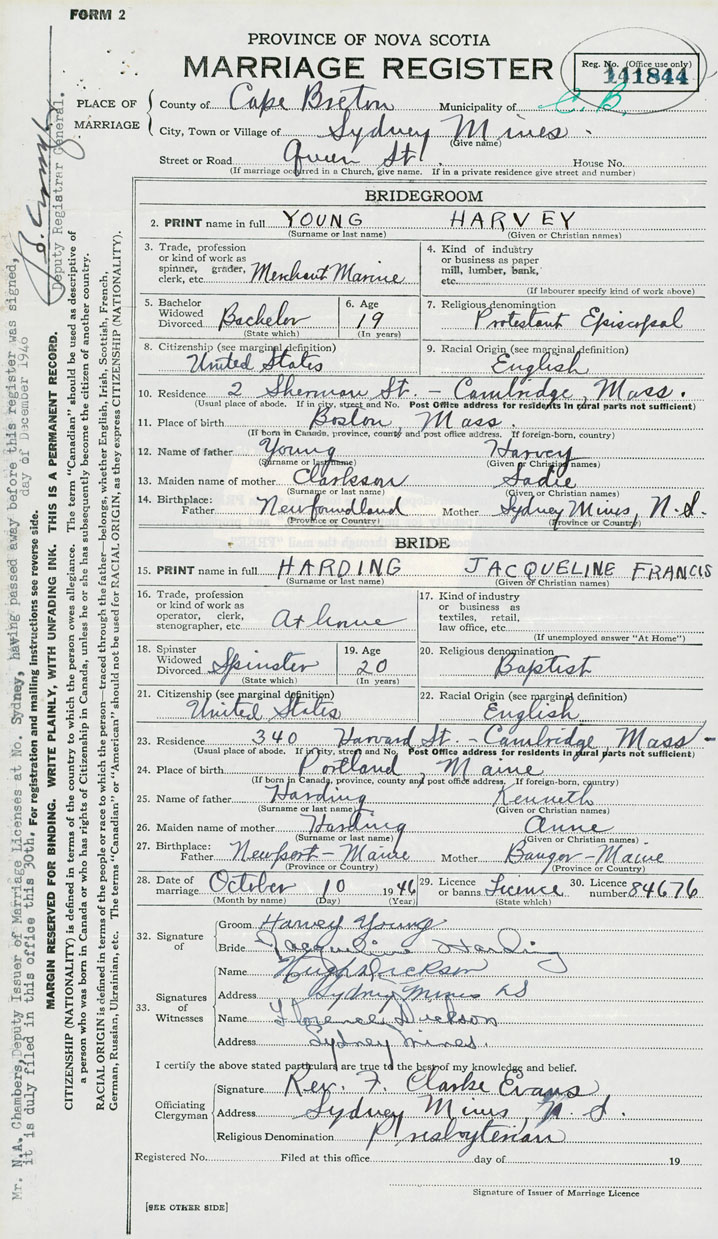 FORM 2
PROVINCE OF NOVA SCOTIA
MARRIAGE REGISTER
Reg. No. (Office use only)
141844
PLACE OF MARRIAGE
County of Cape Breton Municipality of C. B.
City, Town or Village of Sydney Mines.
(Give name)
Street or Road Queen St. House No.
(If marriage occurred in a Church, give name. If in a private residence give street and number)
BRIDEGROOM
2. PRINT name in full YOUNG HARVEY
(Surname or last name) (Given or Christian names)
3. Trade, profession or kind of work as spinner, grader, clerk, etc. Merchant Marine
4. Kind of industry or business as paper mill, lumber, bank, etc.
(If labourer specify kind of work above)
5. Bachelor Widowed Divorced Bachelor
(State which)
6. Age 19
(In years)
7. Religious denomination
Protestant Episcopal
8. Citizenship (see marginal definition)
United States
9. Racial Origin (see marginal definition)
English
10. Residence 2 Sherman St. - Cambridge, Mass.
(Usual place of abode. If in city, street and No. Post Office address for residents in rural parts not sufficient)
11. Place of birth Boston, Mass.
(If born in Canada, province, county and post office address. If foreign-born, country)
12. Name of father Young Harvey
(Surname or last name) (Given or Christian names)
13. Maiden name of mother Clarkson Sadie
(Surname or last name) (Given or Christian names)
14. Birthplace: Father Newfoundland Mother Sydney Mines, N.S.
(Province or Country) (Province or Country)
BRIDE
15. PRINT name in full HARDING JACQUELINE FRANCIS
(Surname or last name) (Given or Christian names)
16. Trade, profession or kind of work as operator, clerk, stenographer, etc. At home
17. Kind of industry or business as textiles, retail, law office, etc.
(If unemployed answer "At Home")
18. Spinster Widowed Divorced Spinster
(State which)
19. Age 20
(In years)
20. Religious denomination
Baptist
21. Citizenship (see marginal definition)
United States
22. Racial Origin (see marginal definition)
English
23. Residence 340 Harvard St. - Cambridge, Mass -
(Usual place of abode. If in city, street and No. Post Office address for residents in rural parts not sufficient)
24. Place of birth Portland, Maine
(If born in Canada, province, county and post office address. If foreign-born, country)
25. Name of father Harding Kenneth
(Surname or last name) (Given or Christian names)
26. Maiden name of mother Harding Anne
(Surname or last name) (Given or Christian names)
27. Birthplace: Father Newport - Maine Mother Bangor - Maine
(Province or Country) (Province or Country)
28. Date of marriage October 10 1946
(Month by name) (Day) (Year)
29. Licence or banns Licence
(State which)
30. Licence number 84676
32. Signature of
Groom Harvey Young
Bride Jacqueline Harding
33. Signatures of Witnesses
Name Hugh Dickson
Address Sydney Mines NS
Name Florence Dickson
Address Sydney Mines.
I certify the above stated particulars are true to the best of my knowledge and belief.
Officiating Clergyman
Signature Rev. F. Clarke Evans
Address Sydney Mines, N. S.
Religious Denomination Presbyterian
Registered No. Filed at this office day of 19
Signature of Issuer of Marriage Licence
[SEE OTHER SIDE]
Mr. N.A. Chambers, Deputy Issuer of Marriage Licenses at No. Sydney, having passed away before this register was signed,
it is duly filed in this office this 30th. day of December 1946
Deputy Registrar General.
For registration and mailing instructions see reverse side.
MARGIN RESERVED FOR BINDING. WRITE PLAINLY, WITH UNFADING INK. THIS IS A PERMANENT RECORD.
CITIZENSHIP (NATIONALITY) is defined in terms of the country to which the person owes allegiance. The term "Canadian" should be used as descriptive of
a person who was born in Canada or who has rights of Citizenship in Canada, unless he or she has subsequently become the citizen of another country.
RACIAL ORIGIN is defined in terms of the people or race to which the person—traced through the father—belongs, whether English, Irish, Scottish, French,
German, Russian, Ukrainian, etc. The terms "Canadian" or "American" should not be used for RACIAL ORIGIN, as they express CITIZENSHIP (NATIONALITY).